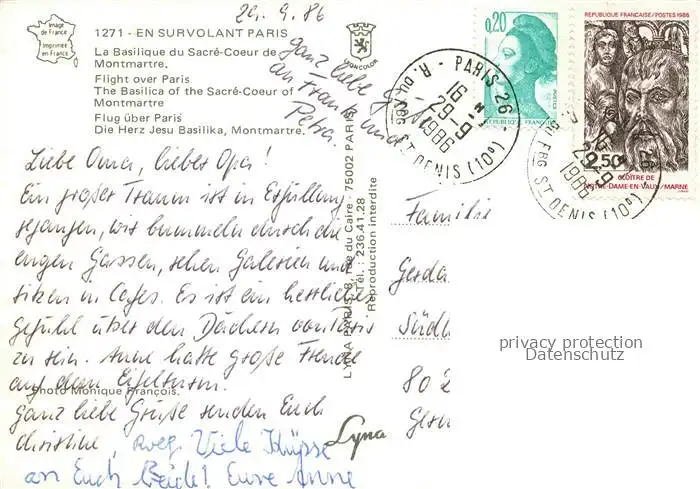 29.9.86
Image
de France
Imprimée
en France
1271 - EN SURVOLANT PARIS
La Basilique du Sacré-Coeur de
Montmartre.
Flight over Paris
The Basilica of the Sacré-Coeur of
Montmartre
Flug über Paris
Die Herz Jesu Basilika, Montmartre.
ganz liebe Grüße
an Frank und
Petra.
Liebe Oma, lieber Opa!
Ein großer Traum ist in Erfüllung
gegangen, wir bummeln durch die
engen Gassen, sehen Galerien und
sitzen in Cafes. Es ist ein herrliches
Gefühl über den Dächern von Paris
zu sein. Anne hatte große Freude
auf dem Eifelturm.
Photo Monique François.
Ganz liebe Grüße senden Euch
Christine,
Viele Küsse
an Euch Beide! Eure Anne
LYNA PARIS, 8, rue du Caire - 75002 PARIS
Tél. : 236.41.28
Reproduction interdite
Lyna
0,20
REPUBLIQUE FRANÇAISE
POSTES
REPUBLIQUE FRANÇAISE/POSTES 1986
2,50
CLOÎTRE DE
NOTRE-DAME-EN-VAUX/MARNE
PARIS 26
16 H
29-9
1986
R. DU FBG ST DENIS (10e)
26
16
29-9
1986
DU FBG ST DENIS (10e)
Familie
Gerda
Süd
802
Ger
privacy protection
Datenschutz